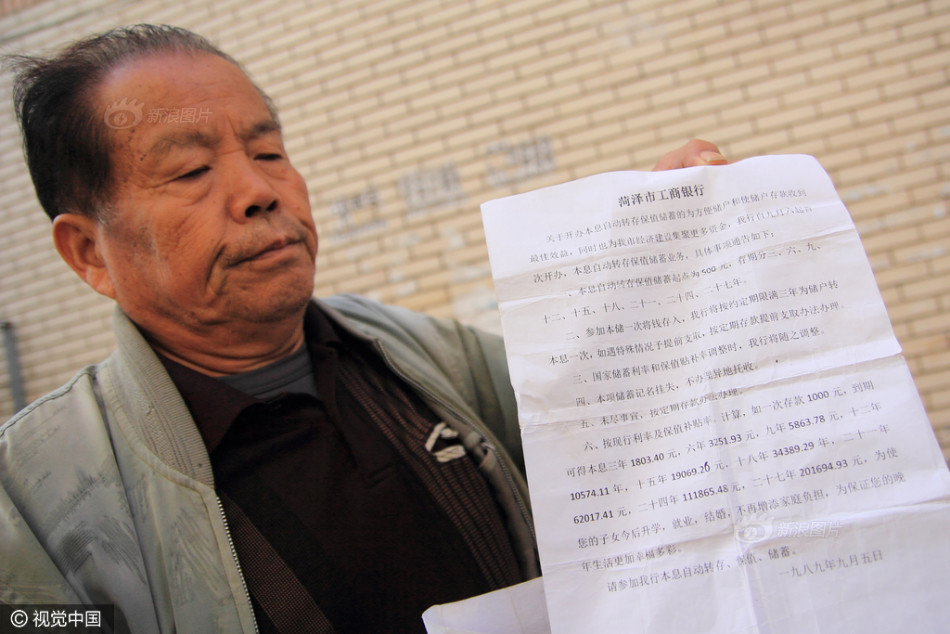 新浪图片
菏泽市工商银行
关于开办本息自动转存保值储蓄的为方便储户和使储户存款收到
最佳效益，同时也为我市经济建设集聚更多资金，我行自九月六起首
次开办，本息自动转存保值储蓄业务，具体事项通告如下：
、本息自动转存保值储蓄起点为500元，存期分三、六、九、
十二、十五、十八、二十一、二十四、二十七年。
二、参加本储一次将钱存入，我行将按约定期限满三年为储户转
本息一次，如遇特殊情况予提前支取，按定期存款提前支取办法办理。
三、国家储蓄利率和保值贴补率调整时，我行将随之调整。
四、本项储蓄记名挂失，不办果异地托收。
五、未尽事宜，按定期存款办法办理。
六、按现行利率及保值补贴率，计算，如一次存款1000元，到期
可得本息三年1803.40元，六年3251.93元，九年5863.78元，十二年
10574.11年，十五年19069.20元，十八年34389.29年，二十一年
62017.41元，二十四年111865.48元，二十七年201694.93元，为使
您的子女今后升学，就业，结婚，不再增添家庭负担，为保证您的晚
年生活更加幸福多彩。
新浪图片
请参加我行本息自动转存、保值、储蓄。
一九八九年九月五日
©视觉中国